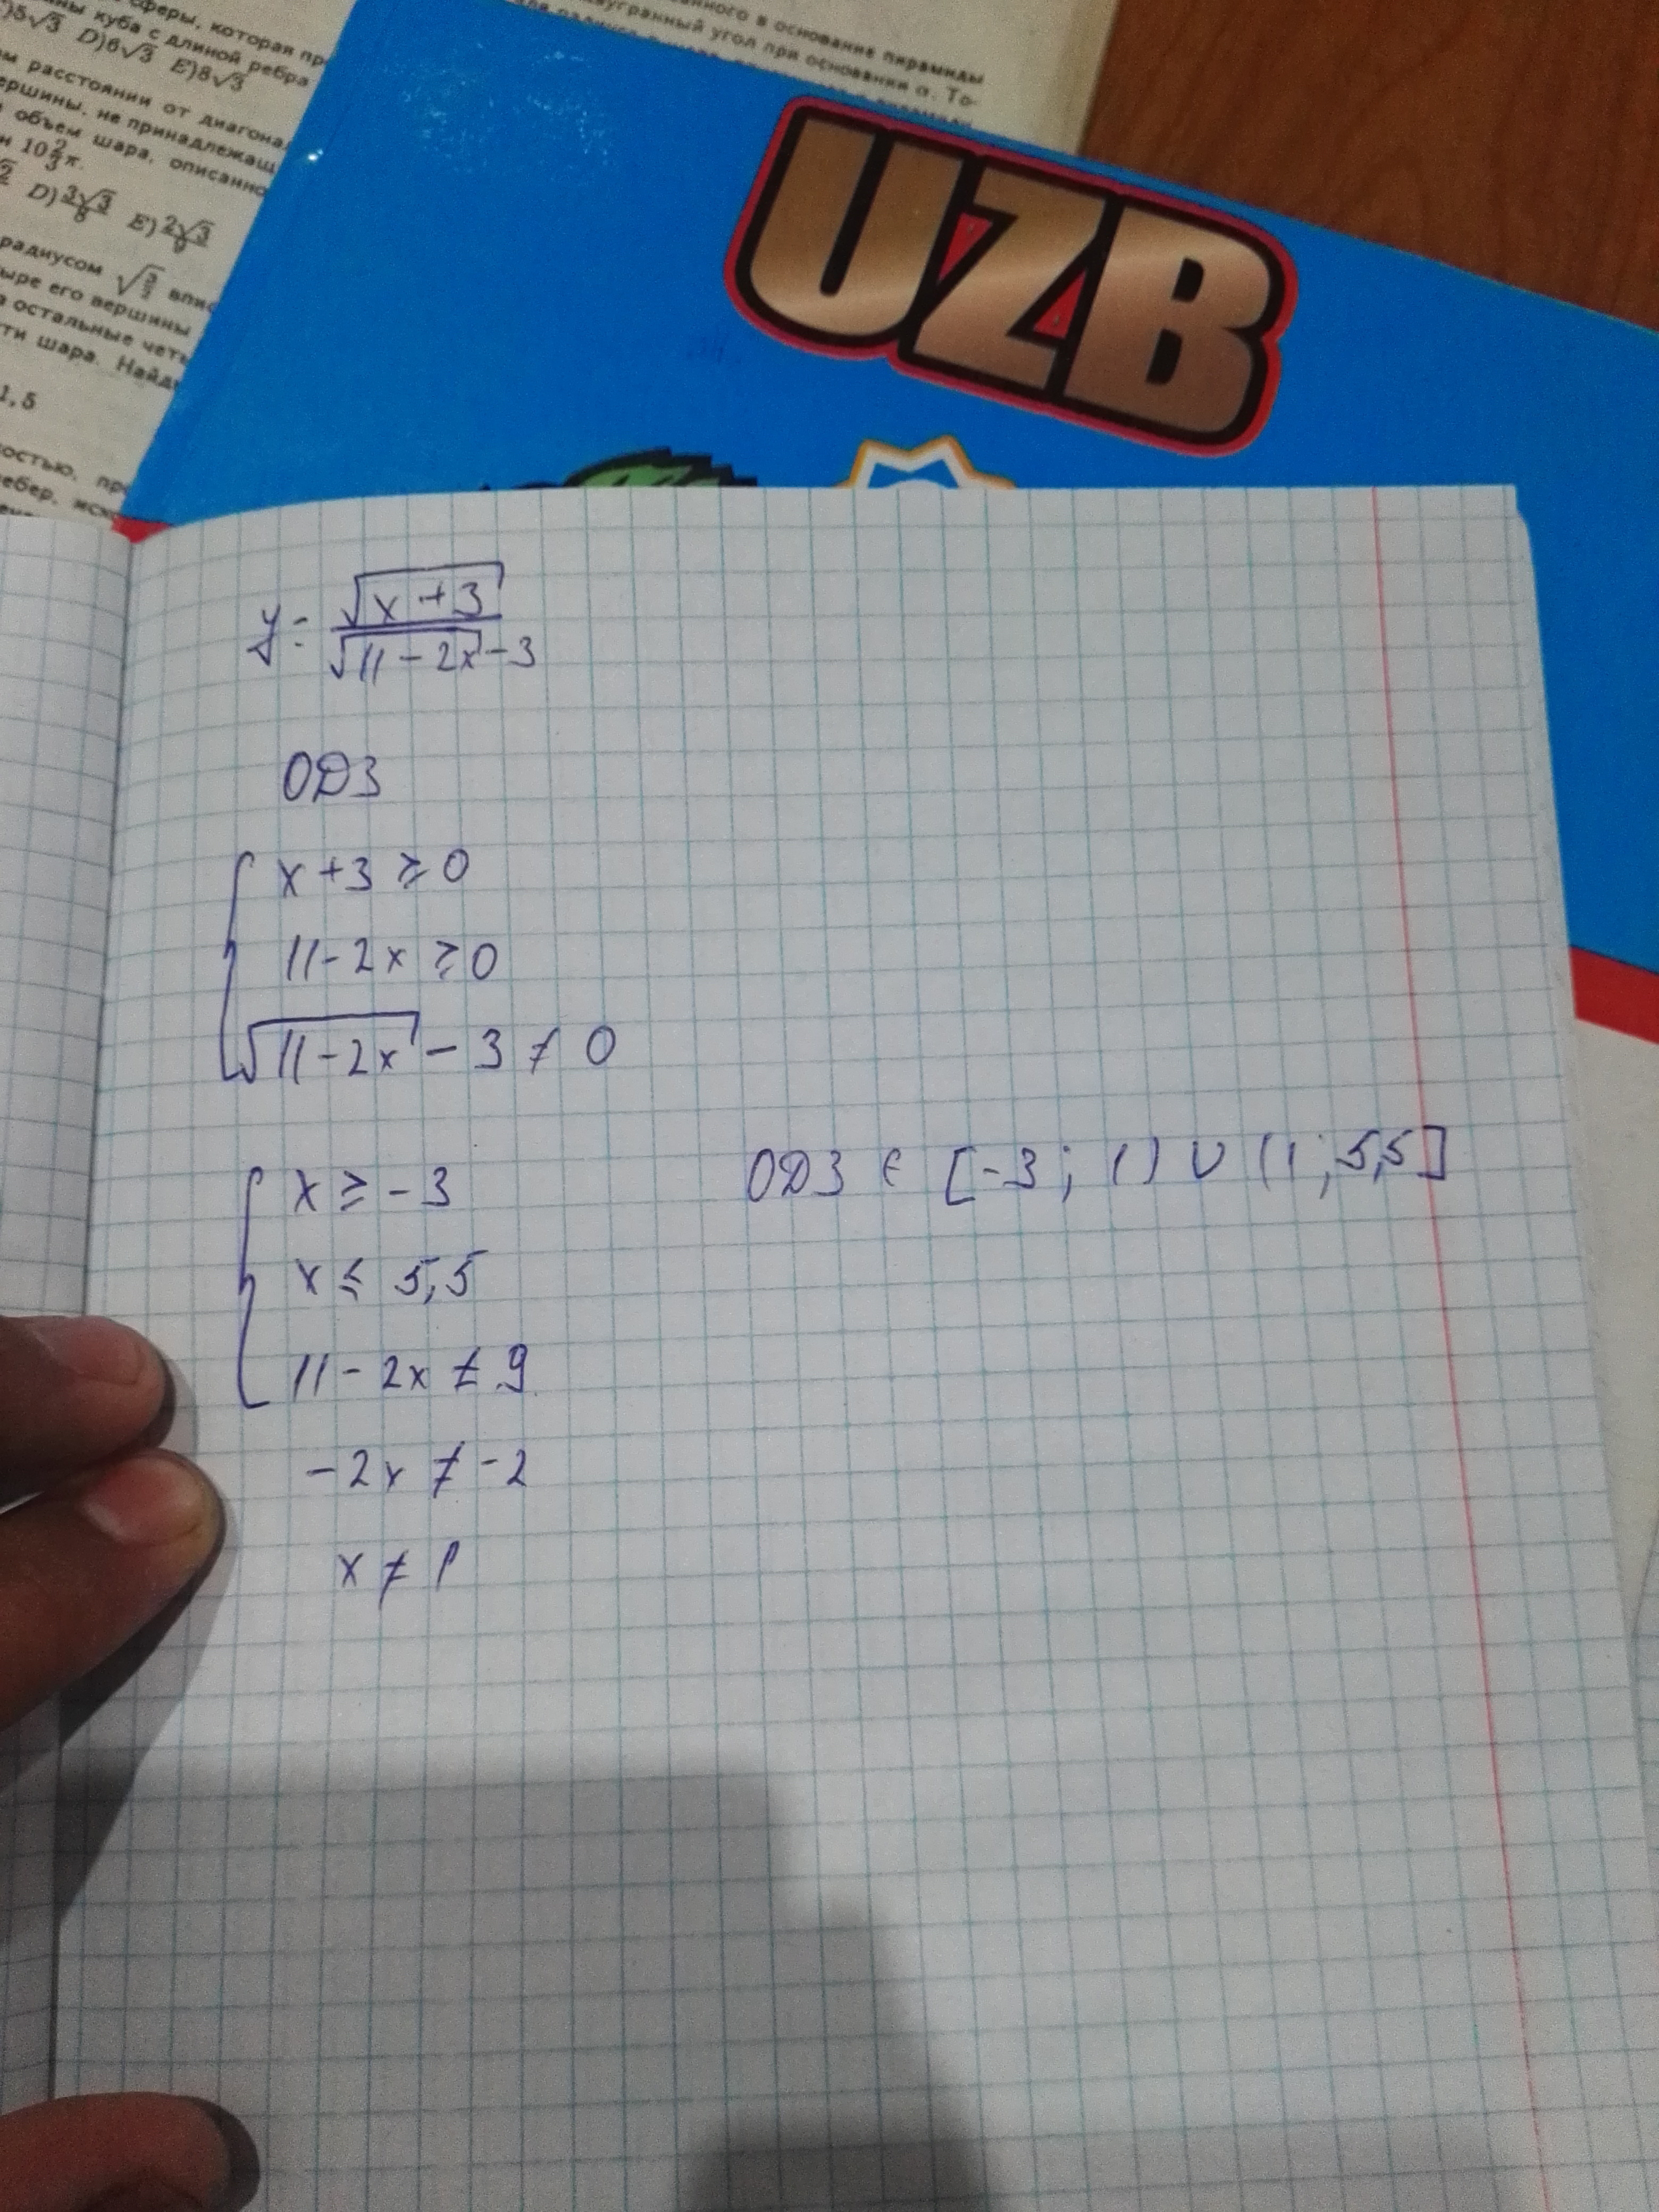 сферы, которая пр
ны куба с длиной ребра
)5√3 D)6√3 E)8√3
м расстоянии от диагона
ершины, не принадлежащ
объем шара, описанно
н 10 2/3 π.
D) 3√3/8 E) 2√3/9
радиусом √(3/2) впис
ыре его вершины
остальные четы
ти шара. Найд
1,5
остью, пр
ебер, иск
анного в основание пирамиды
вугранный угол при основании α. То-
UZB
y = √(x+3) / (√(11-2x) - 3)
ОДЗ
x+3 ≥ 0
11-2x ≥ 0
√(11-2x) - 3 ≠ 0
x ≥ -3
ОДЗ ∈ [-3; 1) ∪ (1; 5,5]
x ≤ 5,5
11-2x ≠ 9
-2x ≠ -2
x ≠ 1